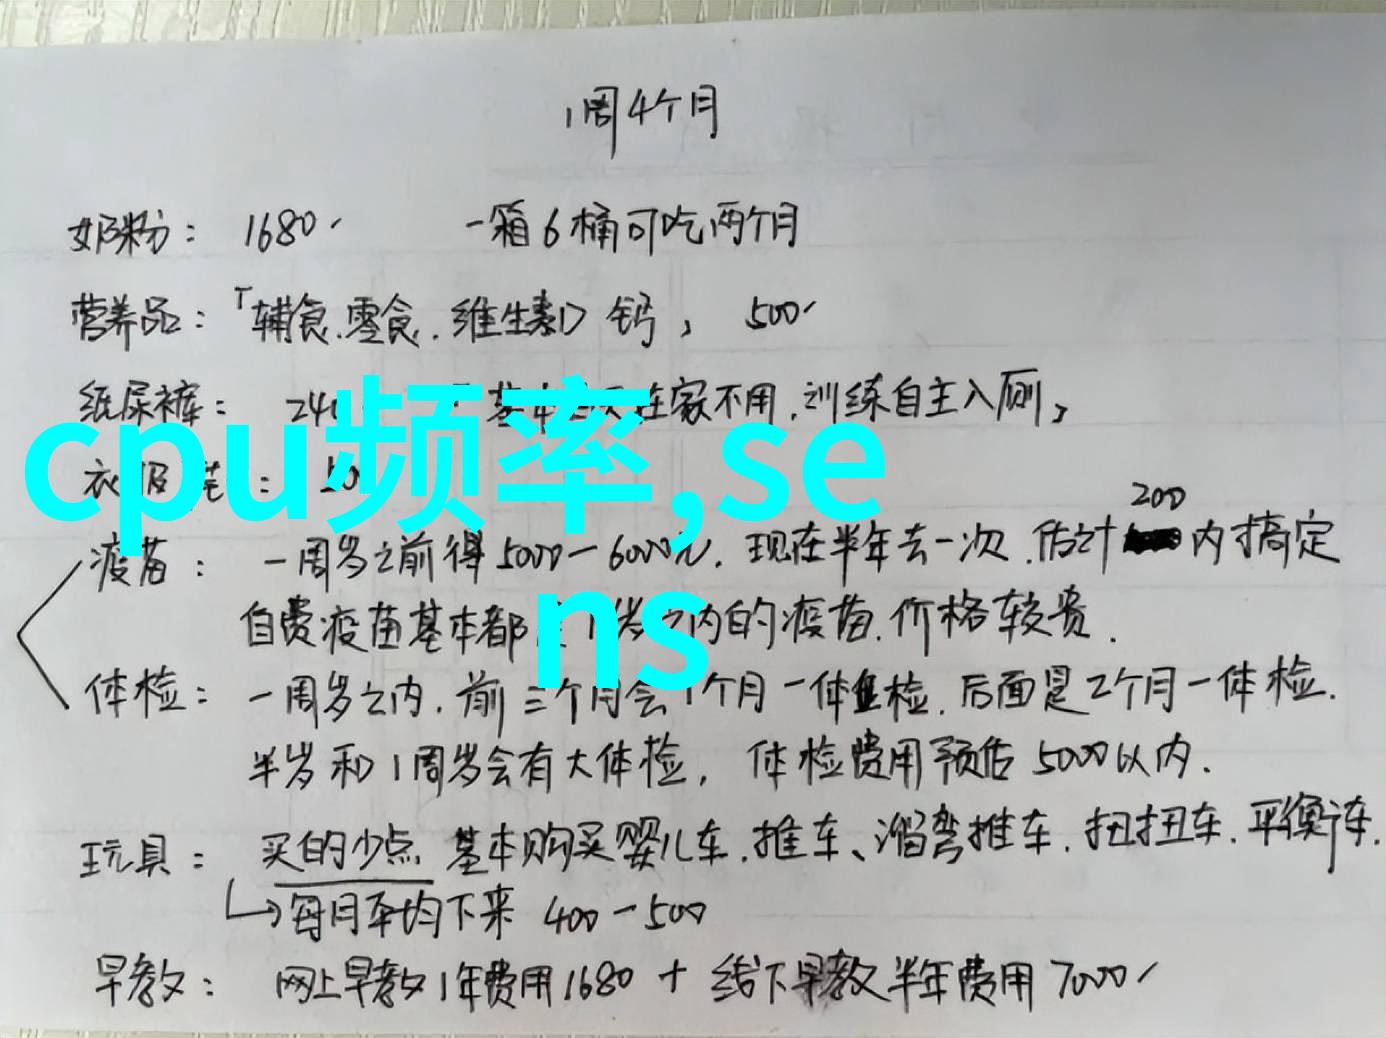 1周4个月
奶粉： 1680 一箱6桶可吃两个月
营养品：「辅食.零食.维生素D 钙， 500
纸尿裤： 240 在家不用，训练自主入厕，
cpu频率,se
ns
衣服
200
疫苗： 一周岁之前得5000一6000元. 现在半年去一次.估计 内搞定
自费疫苗基本都 1岁之内的疫苗.价格较贵.
体检： 一周岁之内.前三个月会1个月一体检.后面是2个月一体检.
半岁和1周岁会有大体检， 体检费用预估5000以内.
玩具： 买的少点 基本购买婴儿车.推车、溜弯推车.扭扭车.平衡车.
每月平均下来 400一500
早教： 网上早教1年费用1680 + 线下早教半年费用7000